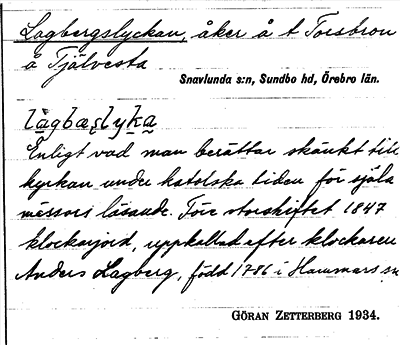 Lagbergslyckan, åker å t Torsbron
å Tjälvesta
Snavlunda s:n, Sundbo hd, Örebro län.
Enligt vad man berättar skänkt till
kyrkan under katolska tiden för själa
mässors läsande. Före storskiftet 1847
klockarjord, uppkallad efter klockaren
Anders Lagberg, född 1786 i Hammars sn
GÖRAN ZETTERBERG 1934.